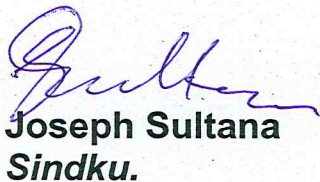 Joseph Sultana
Sindku.